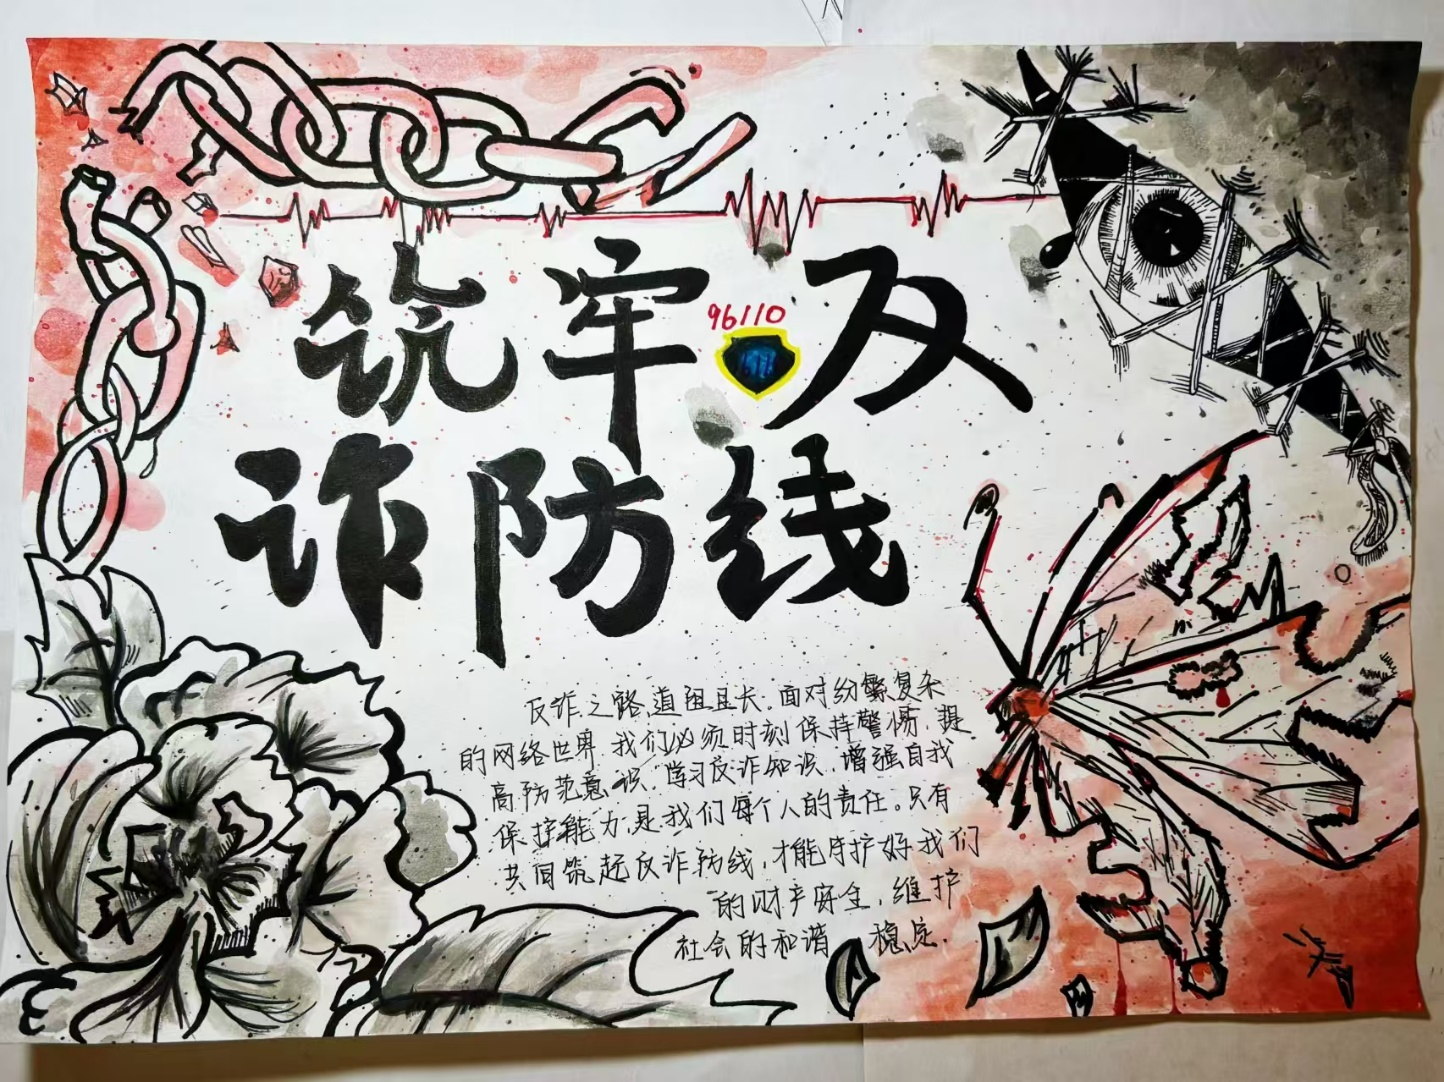 筑牢反
96110
诈防线
反诈之路,道阻且长,面对纷繁复杂
的网络世界,我们必须时刻保持警惕,提
高防范意识,学习反诈知识,增强自我
保护能力,是我们每个人的责任。只有
共同筑起反诈防线,才能守护好我们
的财产安全,维护
社会的和谐 稳定.